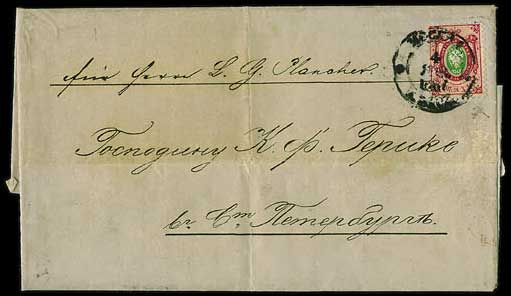 für Herrn L. G. Plancher.
Господину К. Ф. Герике
въ Ст. Петербургѣ.